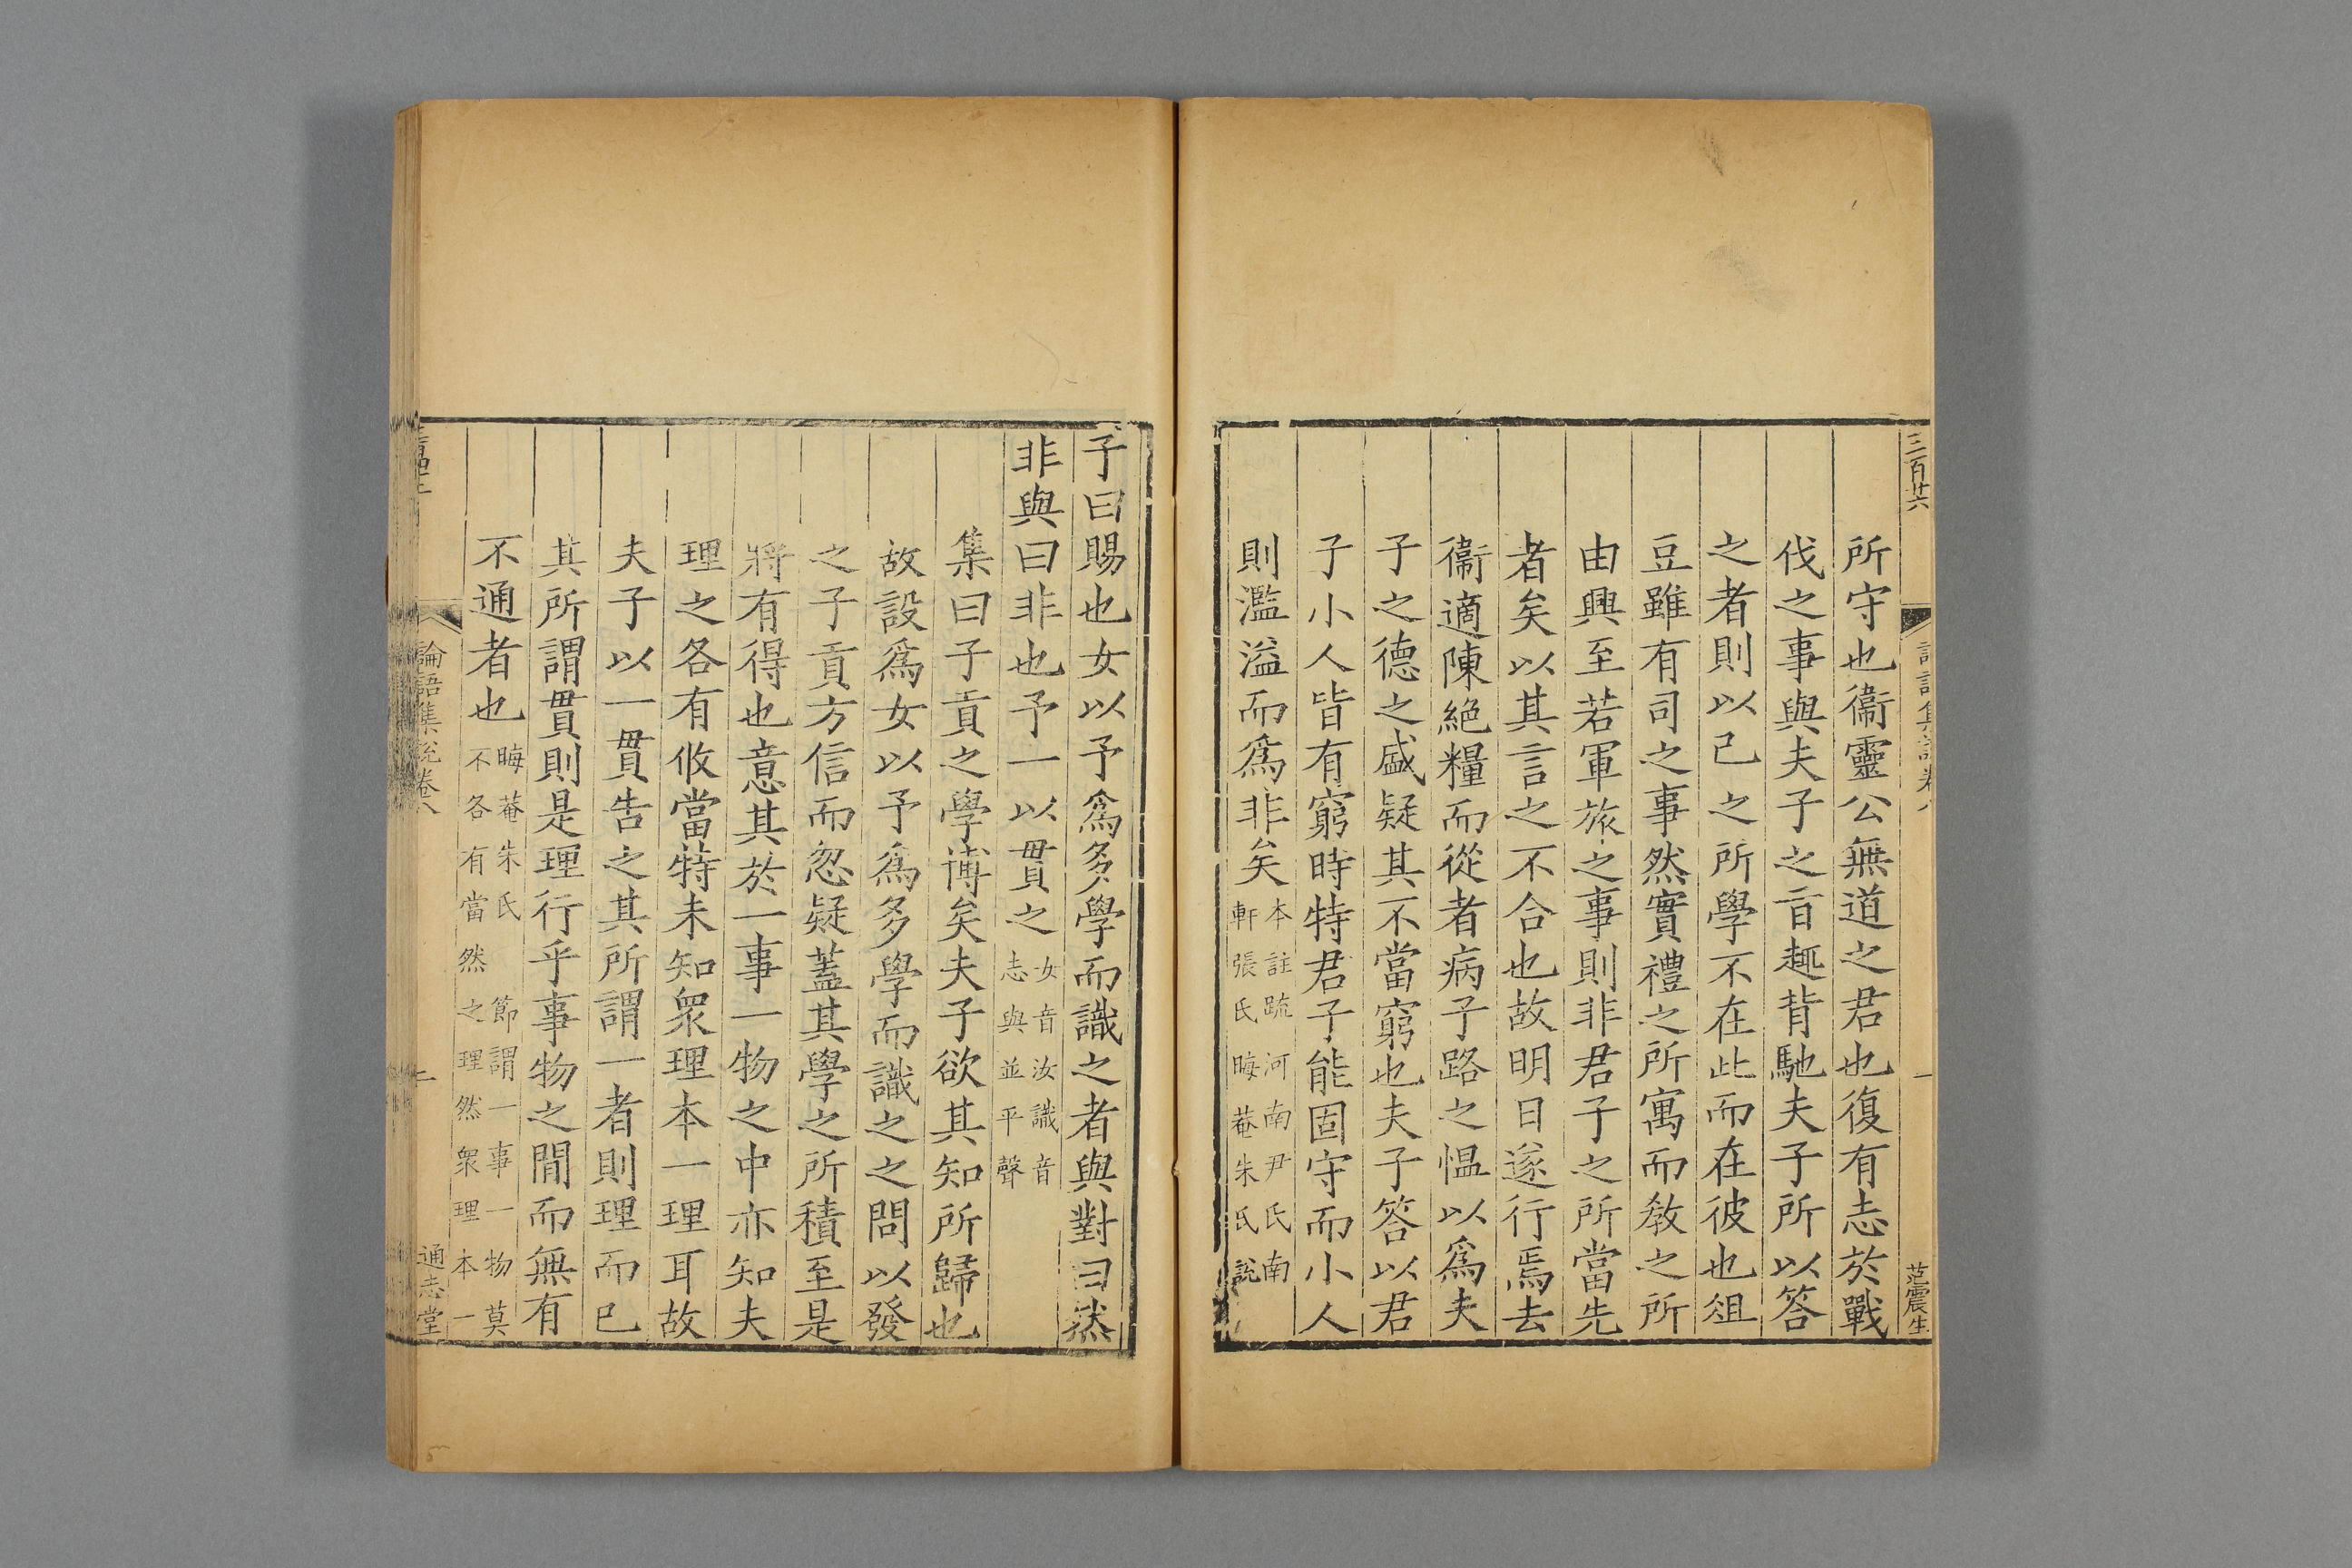 三百廿六
論語集說卷八
一
范震生
所守也衞靈公無道之君也復有志於戰
伐之事與夫子之言趣背馳夫子所以答
之者則以己之所學不在此而在彼也俎
豆雖有司之事然實禮之所寓而敎之所
由興至若軍旅之事則非君子之所當先
者矣以其言之不合也故明日遂行焉去
衞適陳絕糧而從者病子路之慍以爲夫
子之德之盛疑其不當窮也夫子答以君
子小人皆有窮時特君子能固守而小人
則濫溢而爲非矣
本註疏河南尹氏南
軒張氏晦菴朱氏說
子曰賜也女以予爲多學而識之者與對曰然
非與曰非也予一以貫之
女音汝識音
志與並平聲
集曰子貢之學博矣夫子欲其知所歸也
故設爲女以予爲多學而識之之問以發
之子貢方信而忽疑蓋其學之所積至是
將有得也意其於一事一物之中亦知夫
理之各有攸當特未知衆理本一理耳故
夫子以一貫告之其所謂一者則理而已
其所謂貫則是理行乎事物之閒而無有
不通者也
晦菴朱氏 節謂一事一物莫
不各有當然之理然衆理本一
論語集說卷八
二
通志堂